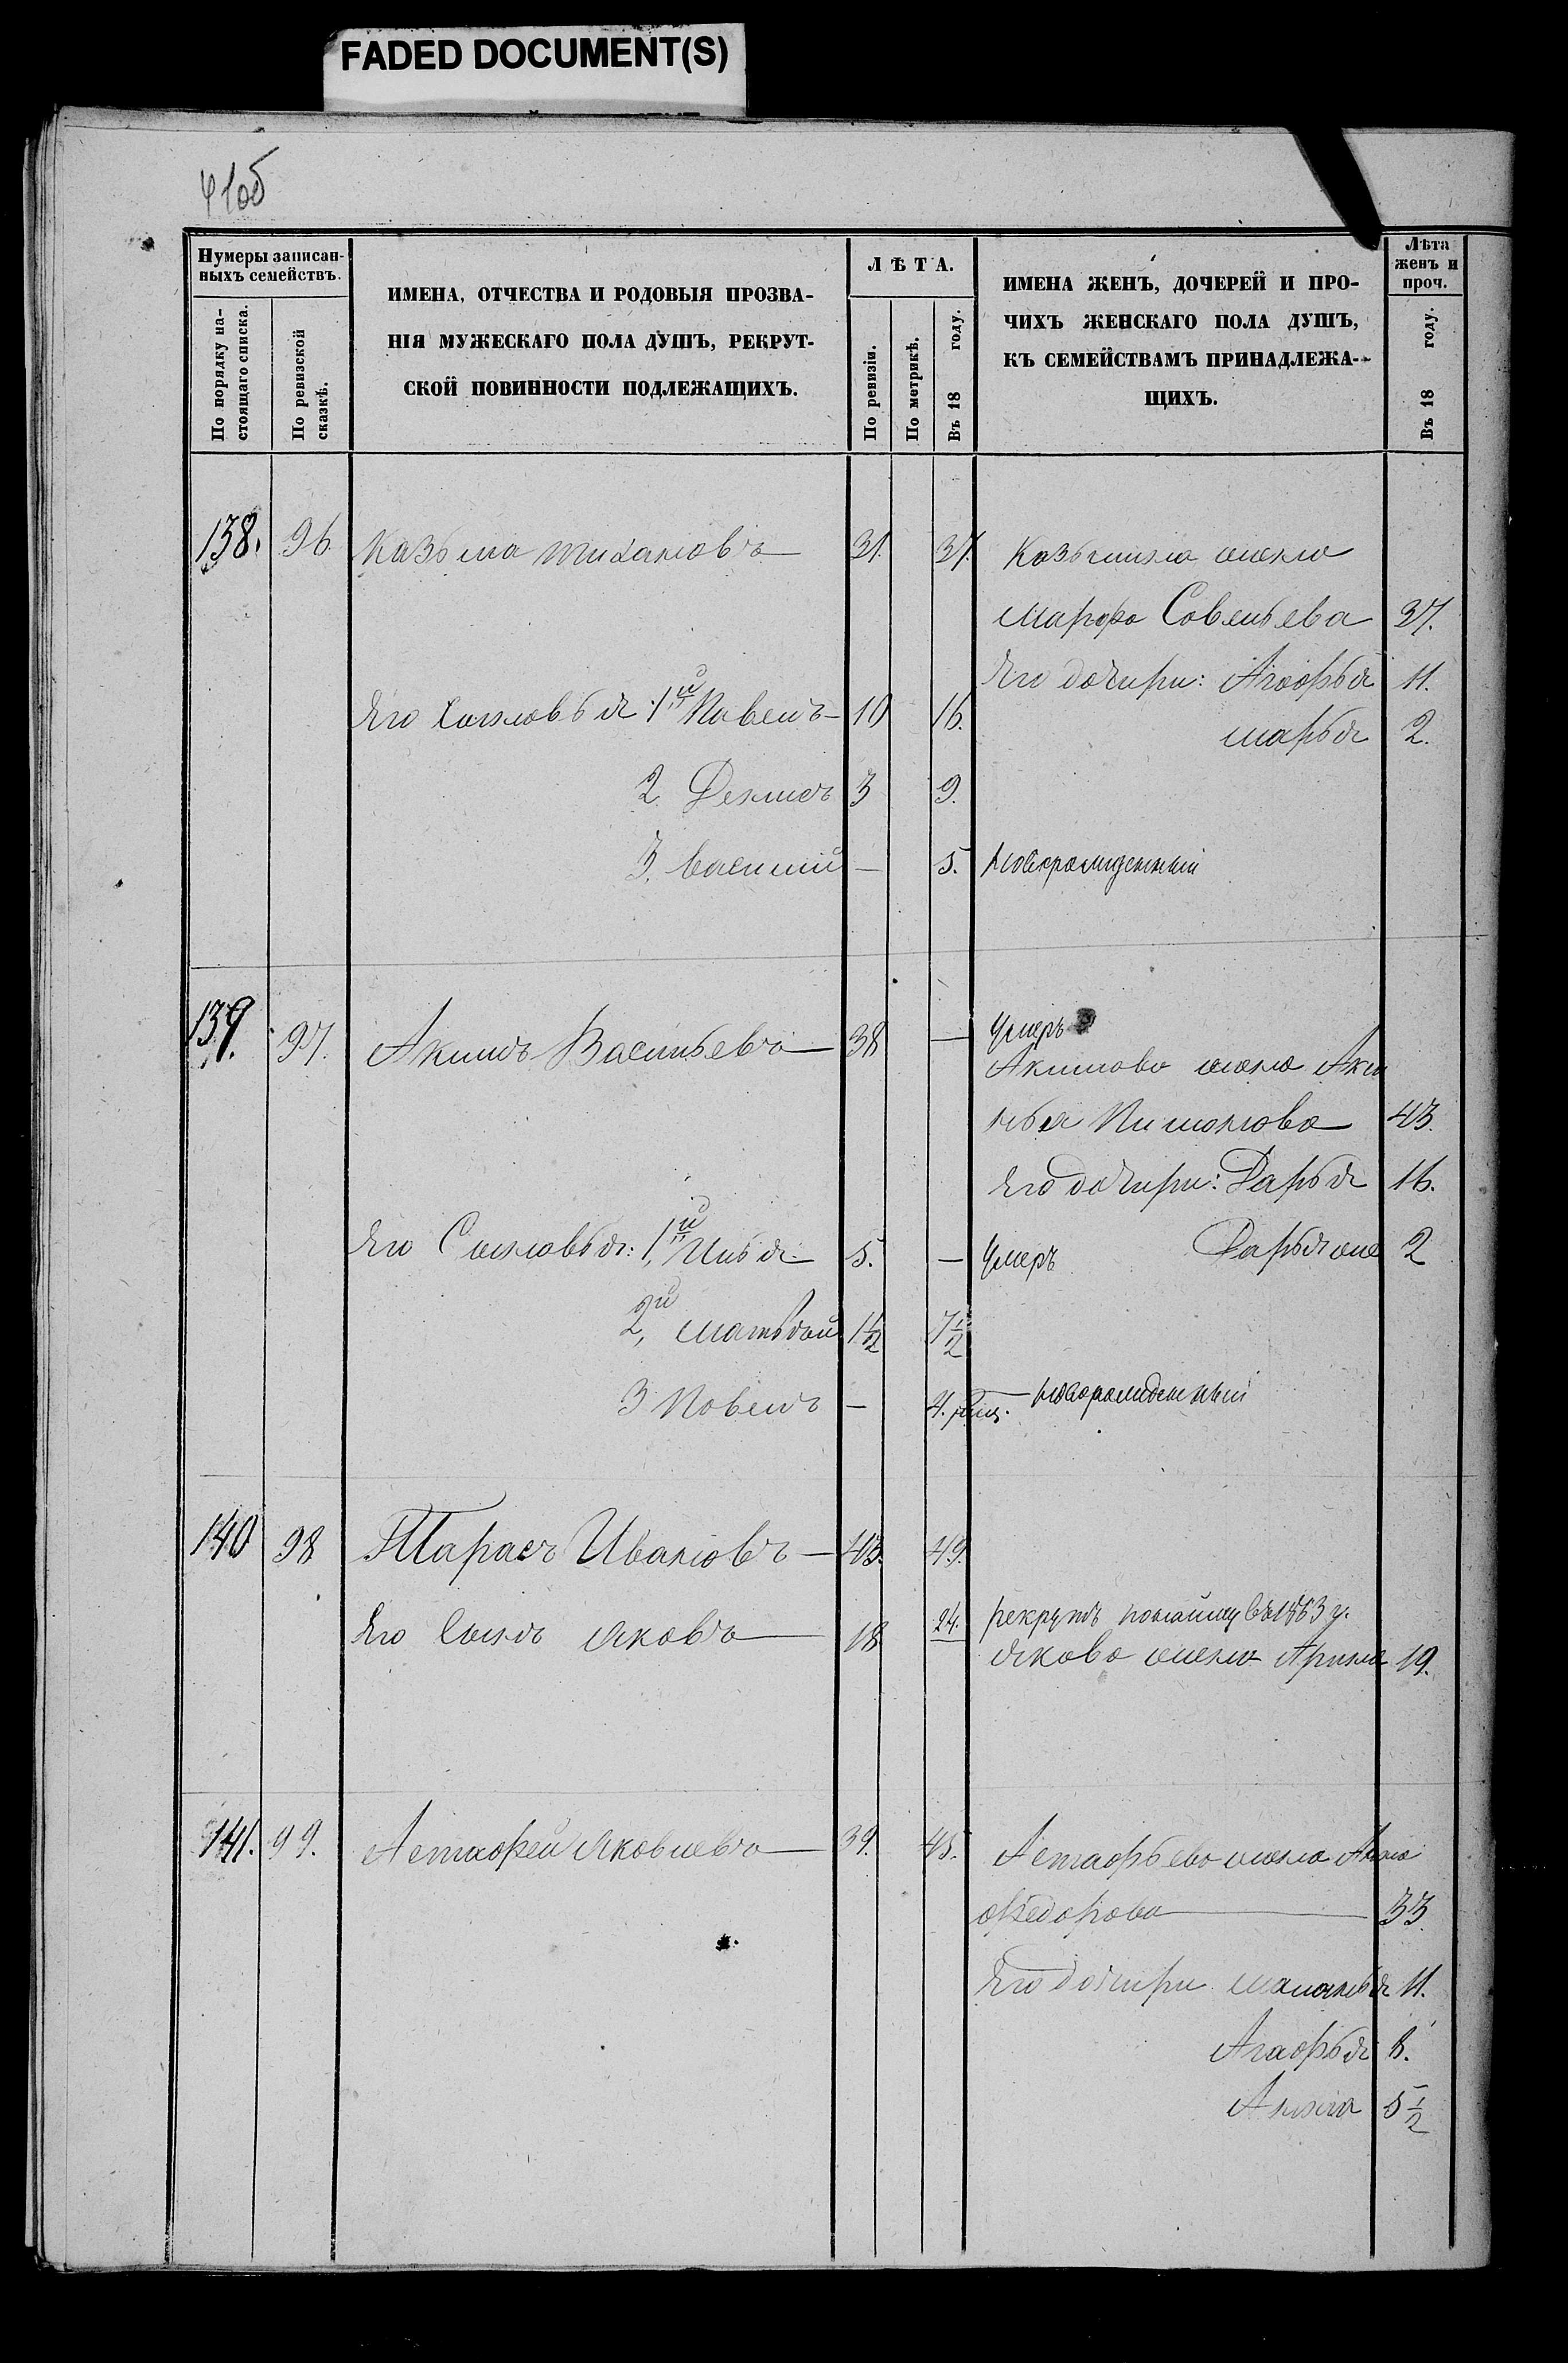 FADED DOCUMENT(S)
41об
Нумеры записан-
ныхъ семействъ.
По порядку на-
стоящаго списка.
По ревизской
сказкѣ.
ИМЕНА, ОТЧЕСТВА И РОДОВЫЯ ПРОЗВА-
НІЯ МУЖЕСКАГО ПОЛА ДУШЪ, РЕКРУТ-
СКОЙ ПОВИННОСТИ ПОДЛЕЖАЩИХЪ.
ЛѢТА.
По ревизіи.
По метрикѣ.
Въ 18 году.
ИМЕНА ЖЕНЪ, ДОЧЕРЕЙ И ПРО-
ЧИХЪ ЖЕНСКАГО ПОЛА ДУШЪ,
КЪ СЕМЕЙСТВАМЪ ПРИНАДЛЕЖА-
ЩИХЪ.
Лѣта
женъ и
проч.
Въ 18 году.
138. 96 Казьма Тихановъ 31. 37. Казьмина жена
Марфа Савельева 37.
Его дочири: Агафья 11.
Его Сыновья: 1й Павелъ 10 16.
Марья 2.
2. Денисъ 3 9.
3. Василий — 5. новорожденный
139. 97. Акимъ Васильевъ 38 — Умеръ
Акимова жена Акси
нья Пимонова 43.
Его дочири: Дарья 16.
Его Сыновья: 1й Илья 5. — Умеръ Дарья же 2
2й Матьвай 1½ 7½
3 Павелъ — 4. новорожденный
140 98 Тарасъ Ивановъ 43. 49.
Его Сынъ Яковъ 18 24. рекрутъ понайму въ 1863 г.
Якова жена Арина 19.
141. 99. Астафей Яковлевъ 39. 45. Астафьева жена Анна
Федорова 33
Его дочири Маланья 11.
Агафья 8.
Анна 5½